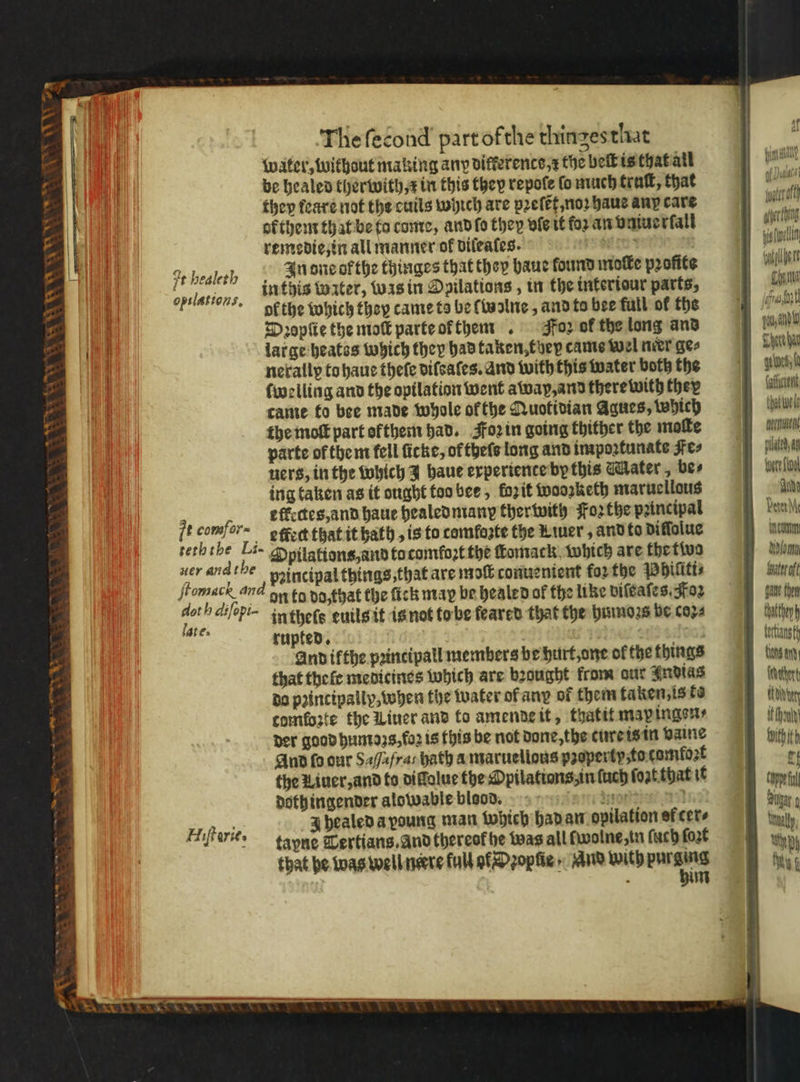 The second part of the thinges that
water, without making any difference, & the best is that all
be healed therwith, & in this they repose so much trust, that
they feare not the euils which are presēt, nor haue any care
of them that be to come, and so they vse it for an vniuersall
remedie, in all manner of diseases.
It healeth
opilations.
In one of the thinges that they haue found moste profite
in this water, was in Opilations, in the interiour parts,
of the which they came to be swolne, and to bee full of the
Dropsie the most parte of them. For of the long and
large heates which they had taken, they came wel neer ge-
nerally to haue these diseases. And with this water both the
swelling and the opilation went away, and therewith they
came to bee made whole of the Quotidian Agues, which
the most part of them had. For in going thither the moste
parte of them fell sicke, of these long and importunate Fe-
uers, in the which I haue experience by this Water, be-
ing taken as it ought too bee, for it woorketh maruellous
effectes, and haue healed many therwith For the principal
It comfor-
teth the Li-
uer and the
stomack and
doth disopi-
late.
effect that it hath, is to comforte the Liuer, and to dissolue
Opilations, and to comfort the stomack which are the two
principal things, that are most conuenient for the Phisiti-
on to do, that the sick may be healed of the like diseases. For
in these euils it is not to be feared that the humors be cor-
rupted.
And if the principall members be hurt, one of the things
that these medicines which are brought from our Indias
do principally, when the water of any of them taken, is to
comforte the Liuer and to amende it, that it may ingen-
der good humors, for is this be not done, the cure is in vaine
And so our Sassafras hath a maruellous property, to comfort
the Liuer, and to dissolue the Opilations, in such sort that it
doth ingender alowable blood.
Historie.
I healed a young man which had an opilation of cer-
tayne Tertians. And thereof he was all swolne, in such sort
that he was well neere full of Dropsie. And with purging
him